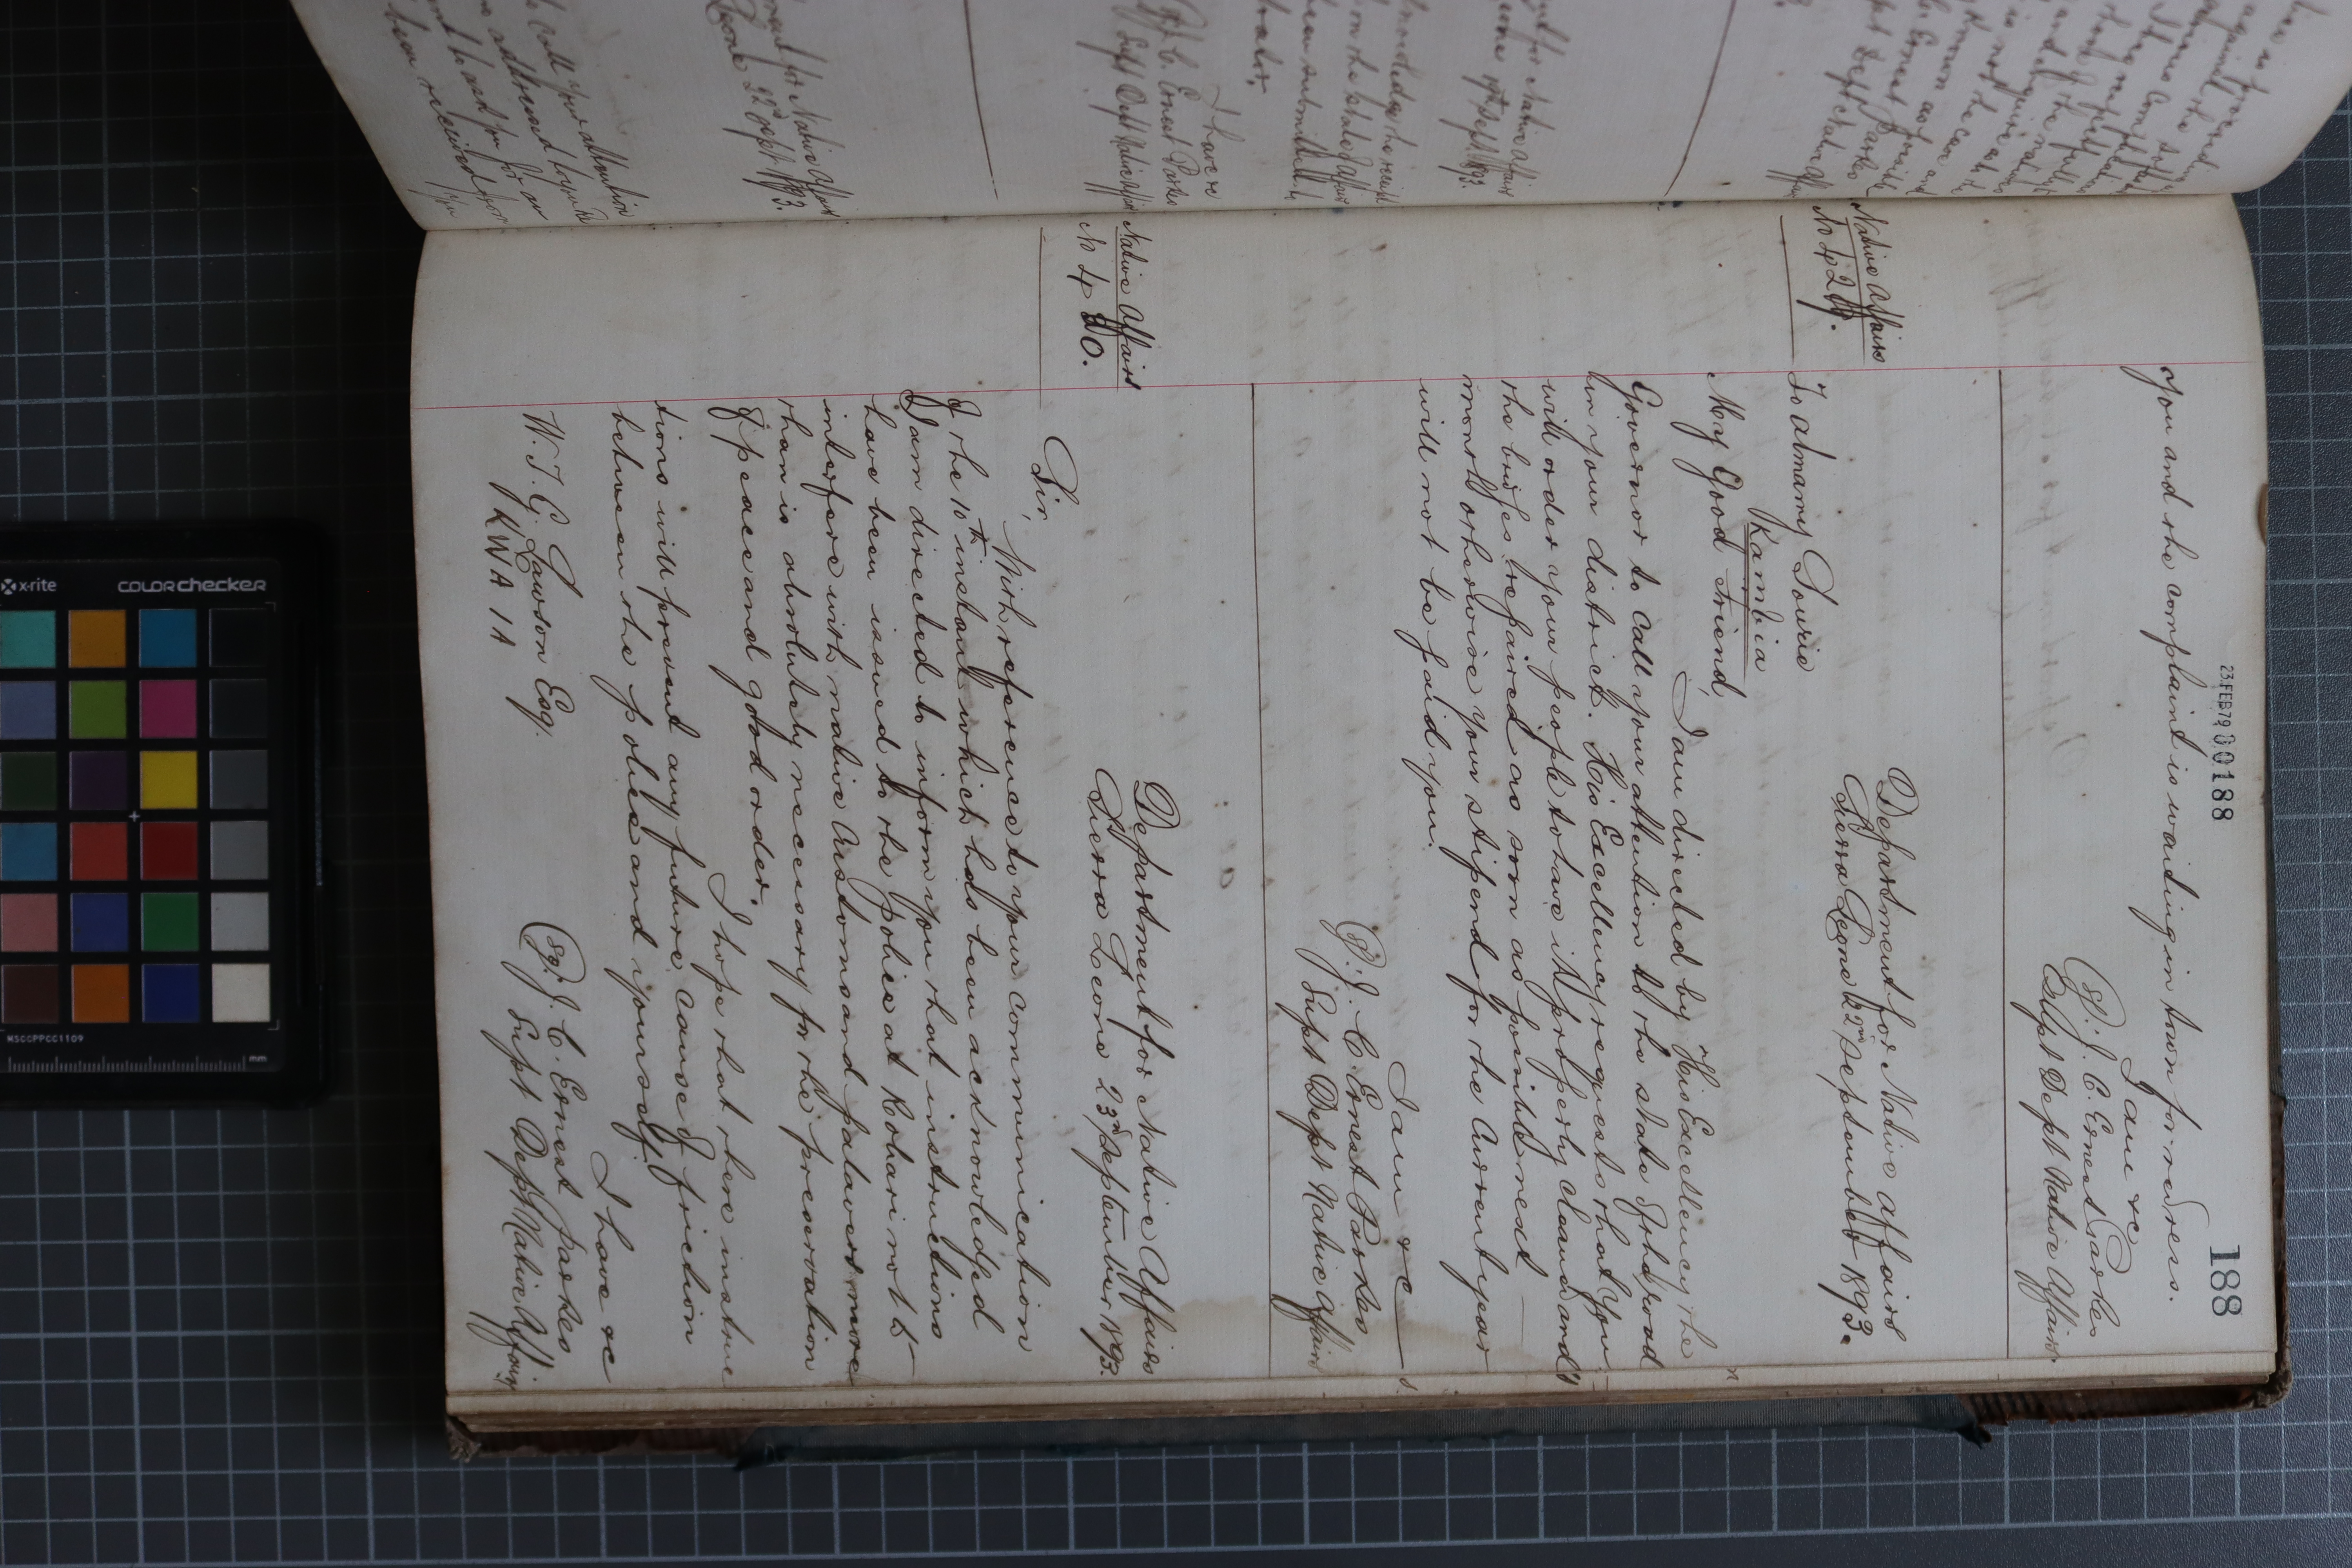 188
23 FEB 79 00188
you and the complaint is waiting in town for redress.
I am &c
(Sg) J. C. Ernest Parkes
Supt Dept Native Affairs.
Native Affairs
No 429.
Department for Native Affairs
Sierra Leone 22nd September 1893.
To Almamy Sourie
Kambia
My Good Friend,
I am directed by His Excellency the
Governor to call your attention to the state of the road
in your district. His Excellency requests that you
will order your people to have it properly cleaned and
the bridges repaired as soon as possible next
month otherwise your stipend for the current year
will not be paid you.
I am &c
(Sg) J. C. Ernest Parkes
Supt Dept Native Affairs
Native Affairs
No 430.
Department for Native Affairs
Sierra Leone 23rd September 1893.
Sir,
With reference to your communication
of the 10th instant which has been acknowledged
I am directed to inform you that instructions
have been issued to the police at Rohari not to
interfere with native customs and palavers more
than is absolutely necessary for the preservation
of peace and good order.
I hope that these instruc
tions will prevent any future cause of friction
between the police and yourself.
I have &c
(Sg) J. C. Ernest Parkes
Supt Dept Native Affairs
W. T. G. Lawson Esq.
KWAIA
have &c
J. C. Ernest Parkes
Supt Dept Native Affairs
Leone 22nd Sept 1893.
call your attention
been received from
x-rite
COLORchecker
MSCCPPCC1109
mm